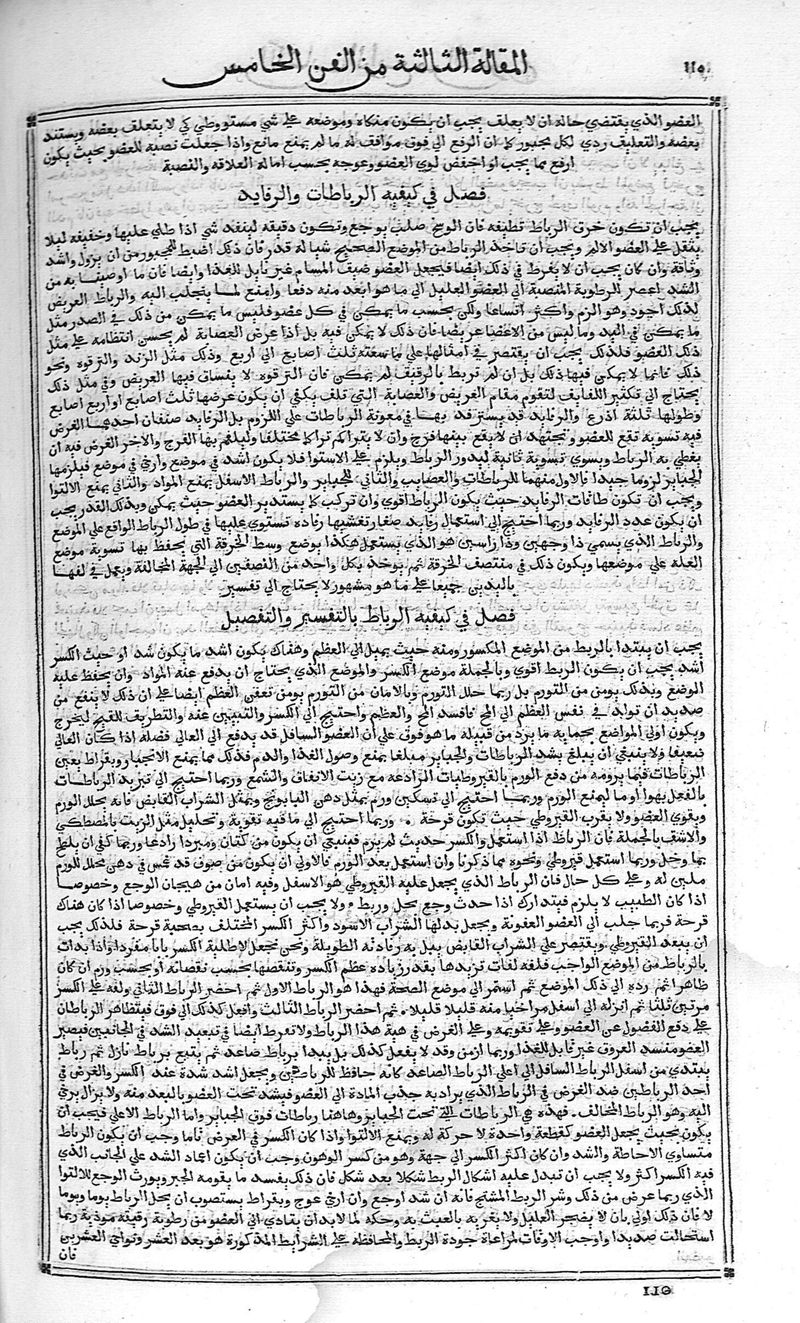 ١١٥ المقالة الثالثة من الفن الخامس
العضو الذي يقتضي حاله ان لا يعلف يجب ان يكون متكاه وموضعه علي شي مستو وطي كي لا يتعلف بعضه ويستند
بعضه والتعليف ردي لكل مجبور كما ان الرفع الي فوق موافق له ما لم يمنع مانع واذا جعلت نصبة للعضو بحيث يكون
ارفع مما يجب او اخفض لوي العضو وعوجه بحسب اماله العلاقه والنصبة
فصل في كيفية الرباطات والرفايد
يجب ان تكون خرق الرباط نظيفه فان الوسخ صلب يوجع وتكون دقيقه لينفد شي اذا طلي عليها وخفيفه ليلا
يثقل علي العضو الالم ويجب ان تاخذ الرباط من الموضع الصحيح شيا له قدر فان ذلك اضبط للمجبور من ان يزول واشد
وثاقة وان كان يجب ان لا يفرط في ذلك ايضا فيجعل العضو ضيف المسام غير قابل للغذا وايضا فان ما اوصيفا به من
الشد اعصر الرطوبة المنصبة الي العضو العليل الي ما هو ابعد منه دفعا وامنع لما يتجلب اليه والرباط العريض
لذلك اجود وهو الزم واكثر اتساعا ولكن بحسب ما يمكن في كل عضو فليس ما يمكن من ذلك في الصدر مثل
ما يمكن في اليد وما ليس من الاعضا عريضا فان ذلك لا يمكن فيه بل اذا عرض العصابة لم يحسن انتظامه علي مثل
ذلك العضو فلذلك يجب ان يقتصر في امثالها علي ما سعته ثلث اصابع الي اربع وذلك مثل الزند والترقوه ونحو
ذلك فانما لا يمكن فيها ذلك بل ان لم تربط بالرقيف لم يمكن فان الترقوه لا ينساق فيها العريض وفي مثل ذلك
يحتاج الي تكثير اللفايف لتقوم مقام العريض والعصابة التي تلف يكفي ان يكون عرضها ثلث اصابع او اربع اصابع
وطولها ثلثة اذرع والرفايد قد يسترفد بها في معونة الرباطات علي اللزوم بل الرفايد صنفان احدهما الغرض
فيه تسوية تقع للعضو ويجتهد ان لا يقع بينها فرج وان لا يتراكم تراكما مختلفا وليلقم بها الفرج والاخر الغرض فيه ان
يغطي به الرباط ويسوي تسوية ثانية ليدور الرباط ويلزم علي الاستوا فلا يكون اشد في موضع وارخي في موضع فيلزمها
الجباير لزوما جيدا فالاول منهما للرباطات والعصايب والثاني للجباير والرباط الاسفل يمنع المواد والثاني يمنع الالتوا
ويجب ان تكون طاقات الرفايد حيث يكون الرباط اقوي وان تركب كما يستدير العضو حيث يمكن وبذلك القدر يجب
ان يكون عدد الرفايد وربما احتيج الي استعمال رفايد صغار تغشيها رفاده تستوي عليها في طول الرباط الواقع علي الموضع
والرباط الذي يسمي ذا وجهين وذا راسين هو الذي يستعمل هكذا يوضع وسط الخرقة التي يحفظ بها تسوية موضع
العله علي موضعها ويكون ذلك في منتصف الخرقة ثم يوخذ بكل واحد من النصفين الي الجهة المخالفة ويعمل في لفها
باليدين جميعا علي ما هو مشهور لا يحتاج الي تفسير
فصل في كيفية الرباط بالتفسير والتفصيل
يجب ان يبتدا بالربط من الموضع المكسور ومنه حيث يميل الي العظم وهناك يكون اشد ما يكون شد او حيث الكسر
اشد يجب ان يكون الربط اقوي وبالجملة موضع الكسر والموضع الذي يحتاج ان يدفع عنه المواد وان يحفظ علية
الموضع وبذلك يومن من التورم بل ربما حلل التورم وبالامان من التورم يومن تعفن العظم ايضا علي ان ذلك لا ينفع من
صديد ان تولد في نفس العظم الي المخ فافسد المخ والعظيم واحتيج الي الكسر والتبيين عنه والتطريف للقيح ليخرج
ويكون اولي المواضع بحمايه ما يرد من قبيله ما هو فوق علي ان العضو السافل قد يدفع الي العالي فضله اذا كان العالي
ضعيفا ولا ينبغي ان يبلغ بشد الرباطات والجباير مبلغا يمنع وصول الغذا والدم فذلك مما يمنع الانجبار وبقراط يعين
الرباطات فيما يرومه من دفع الورم بالقيروطيات الرادعه مع زيت الانفاق والشمع وربما احتيج الي تبريد الرباطات
بالفعل بهوا او ما ليمنع الورم وربما احتيج الي تسكين ورم بمثل دهن البابونج وبمثل الشراب القابض فانه يحلل الورم
ويقوي العضو ولا يقرب القيروطي حيث تكون قرحة . وربما احتيج الي ما فيه تقوية وتحليل مثل الزيت بالمصطكي
والاشق بالجملة فان الرباط اذا استعمل والكسر حديث لم يرم فينبغي ان يكون من كتان ومبردا رادعا وربما كفي ان يلطخ
بها وخل وربما استعمل قيروطي ونحوه مما ذكرنا وان استعمل بعد الورم فالاولي ان يكون من صوف قد غمس في دهن محلل للورم
ملين له وعلي كل حال فان الرباط الذي يجعل عليه القيروطي هو الاسفل وفيه امان من هيجان الوجع وخصوصا
اذا كان الطبيب لا يلزم فيتدارك اذا حدث وجع بحل وربط ولا يجب ان يستعمل القيروطي وخصوصا اذا كان هناك
قرحة فربما جلب الي العضو العفونة ويجعل بدلها الشراب الاسود واكثر الكسر المختلف بصحبة قرحة فلذلك يجب
ان يبعد القيروطي ويقتصر علي الشراب القابض يبل به رفادته الطويلة ونحن نجعل لاطلية الكسر بابا مفردا واذا بدات
بالرباط من الموضع الواجب فلفه لفات تزيدها بقدر زياده عظم الكسر وتنقصها بحسب نقصانه او بحسب ورم ان كان
ظاهرا ثم رده الي ذلك الموضع ثم استمر الي موضع الصحة فهذا هو الرباط الاول ثم احضر الرباط الثاني ولفه علي الكسر
مرتين ثلثا ثم انزله الي اسفل مراخيا منه قليلا قليلا . ثم احضر الرباط الثالث وافعل كذلك الي فوق فيتظاهر الرباطان
علي دفع الفضول عن العضو وعلي تقويمه وعلي الغرض في هية هذا الرباط ولا تفرط ايضا في تبعيد الشد في الجانبين فيصير
العضو منسد العروق غير قابل للغذا وربما ازمن وقد لا يفعل كذلك بل يبدا برباط صاعد ثم يتبع برباط نازل ثم رباط
يبتدي من اسفل الرباط السافل الي اعلي الرباط الصاعد كانه حافظ للرباطين ويجعل اشد شدة عند الكسر والغرض في
احد الرباطين ضد الغرض في الرباط الذي يراد به جذب المادة الي العضو فيشد تحت العضو بالبعد منه ولا يزال يرخي
اليه وهو الرباط المخالف . فهذه هي الرباطات التي تحت الجباير وهاهنا رباطات فوق الجباير واما الرباط الاعلي فيجب ان
يكون بحيث يجعل العضو كقطعة واحدة لا حركة له ويمنع الالتوا واذا كان الكسر في العرض تاما وجب ان يكون الرباط
متساوي الاحاطة والشد وان كان اكثر الكسر الي جهة وهو من كسر الوهون وجب ان يكون اعماد الشد علي الجانب الذي
فيه الكسر اكثر ولا يجب ان تبدل عليه اشكال الربط شكلا بعد شكل فان ذلك يفسد ما يقومه الجبر ويورث الوجع للالتوا
الذي ربما عرض من ذلك وشر الربط المشنج فانه ان شد اوجع وان ارخي عوج وبقراط يستصوب ان يحل الرباط يوما ويوما
لا فان ذلك اولي بان لا يضجر العليل ولا يغريه بالعبث به وحكه لما لا بد ان يتادي الي العضو من رطوبة رقيقه موذية ربما
استحالت صديدا واوجب الاوقات لمراعاة جودة الربط والمحافظه علي الشرايط المذكورة هو بعد العشر وتوابي العشرين
فان
115